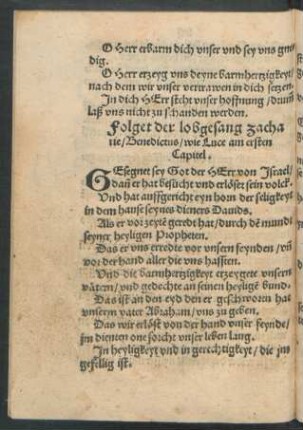 O Herr erbarm dich vnser vnd sey vns gne
dig.
O Herr erzeyg vns deyne barmhertzigkeyt/
nach dem wir vnser vertrawen in dich setzen.
In dich HErr steht vnser hoffnung / darum̄
laß vns nicht zu schanden werden.
Folget der lobgesang zacha
rie/Benedictus/wie Luce am ersten
Capitel.
GEsegnet sey Got der HErr von Israel/
dañ er hat besucht vnd erlöset sein volck.
Vnd hat auffgericht eyn horn der seligkeyt
in dem hause seynes dieners Dauids.
Als er vor zeytē geredt hat/durch dē mund
seyner heyligen Propheten.
Das er vns erredte vor vnsern feynden/vñ
vor der hand aller die vns hassten.
Vnd die barmhertzigkeyt erzeygete vnsern
vätern/vnd gedechte an seinen heyligē bund.
Das ist an den eyd den er geschworen hat
vnserm vater Abraham/vns zu geben.
Das wir erlöst von der hand vnser feynde/
jm dienten one forcht vnser leben lang.
In heyligkeyt vnd in gerechtigkeyt/die jm
gefellig ist.